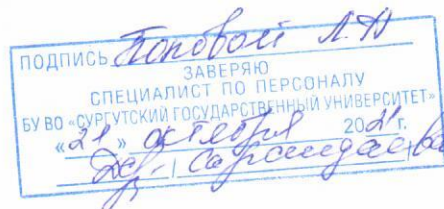 ПОДПИСЬ Поповой Л.Н
ЗАВЕРЯЮ
СПЕЦИАЛИСТ ПО ПЕРСОНАЛУ
БУ ВО «СУРГУТСКИЙ ГОСУДАРСТВЕННЫЙ УНИВЕРСИТЕТ»
«21» октября 2021 г.